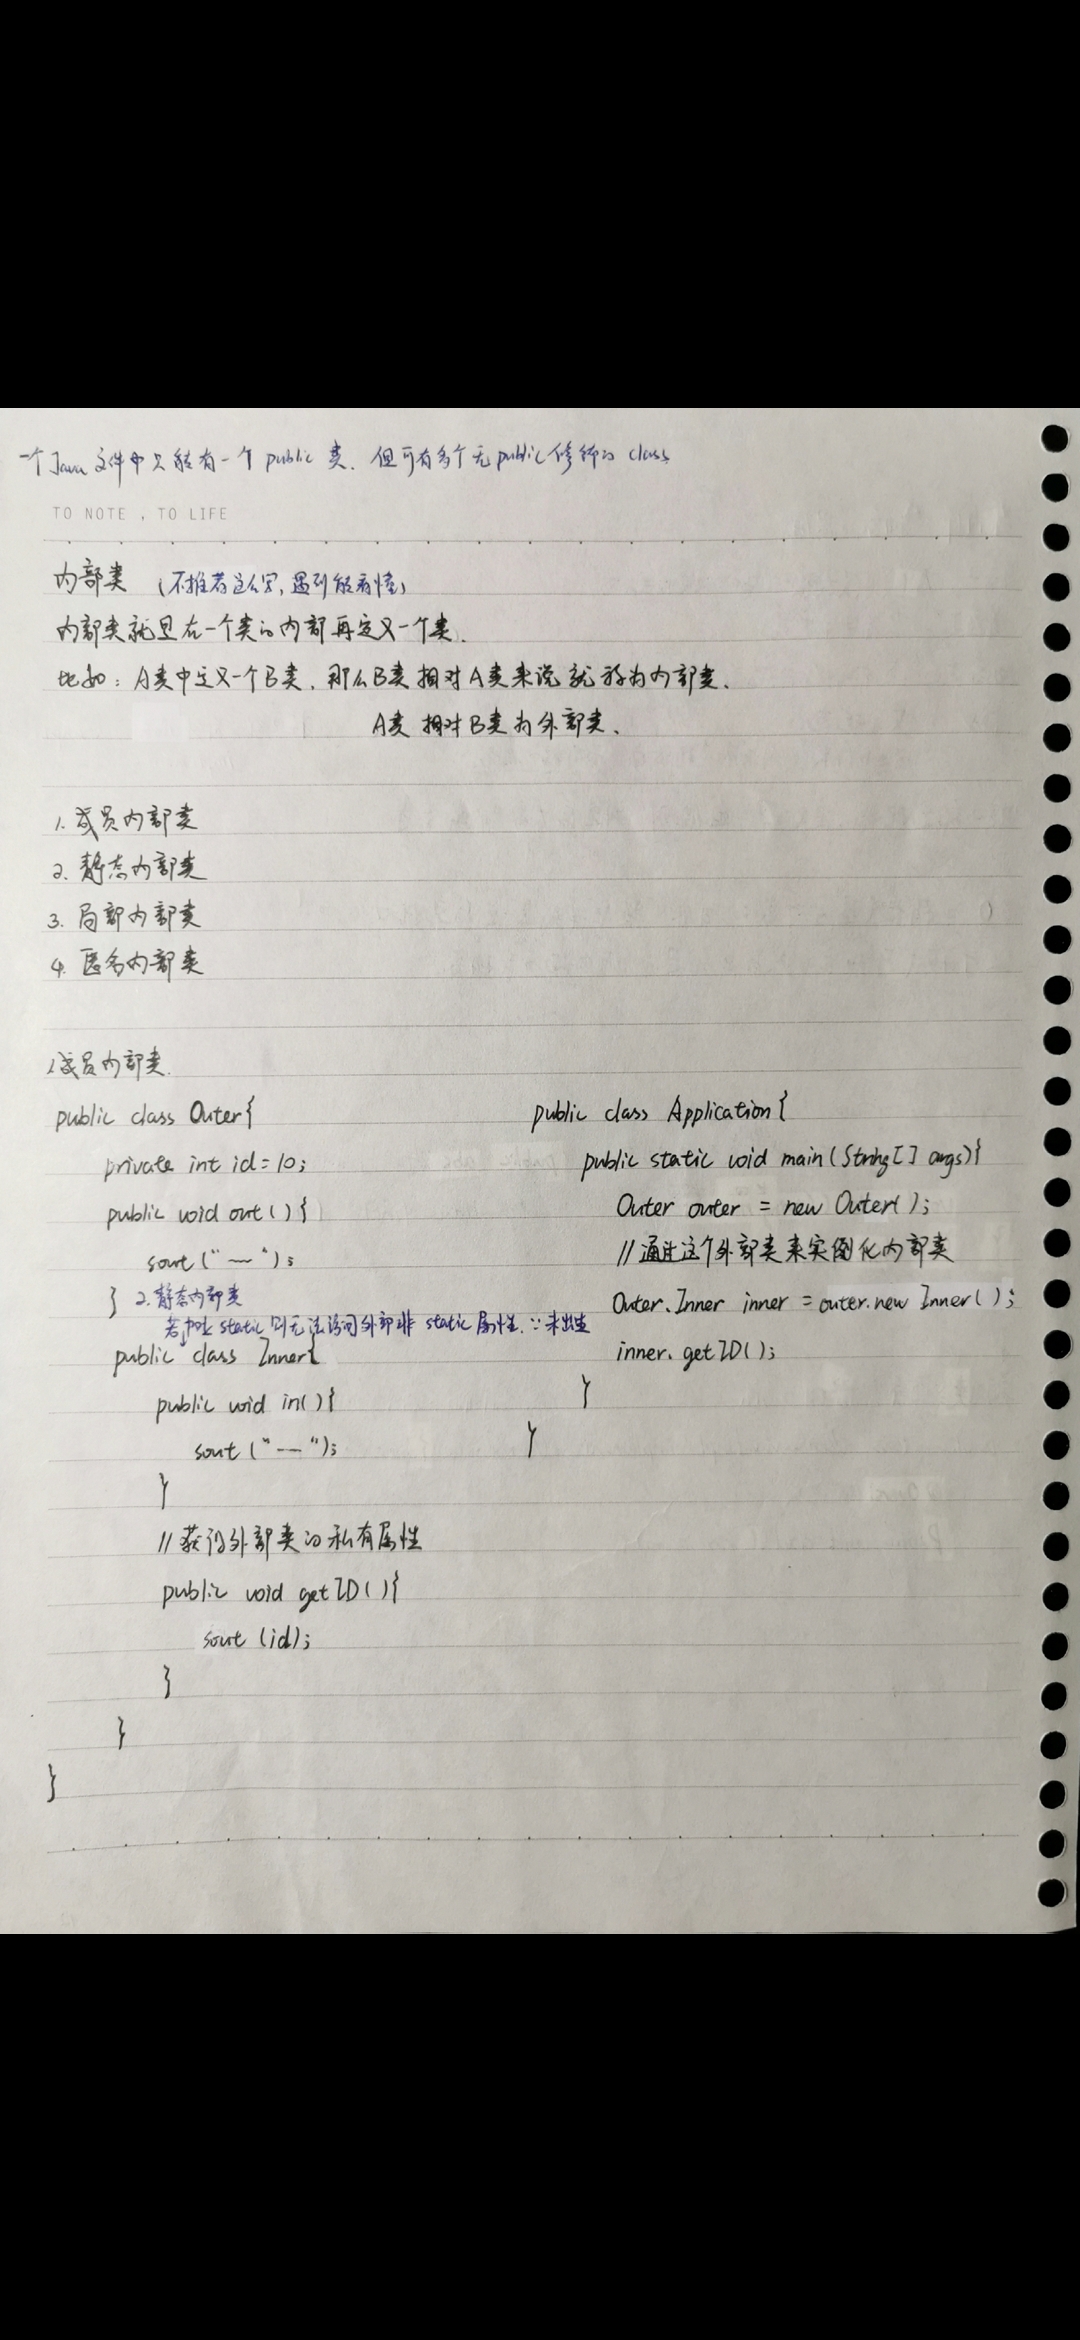 一个Java文件中只能有一个public类、但可有多个无public修饰的class
TO NOTE , TO LIFE
内部类 (不推荐这么写,遇到能看懂)
内部类就是在一个类的内部再定义一个类.
比如: A类中定义一个B类、那么B类相对A类来说就称为内部类、
A类相对B类为外部类、
1. 成员内部类
2. 静态内部类
3. 局部内部类
4. 匿名内部类
1.成员内部类.
public class Outer{
private int id=10;
public void out(){
sout("—");
} 2.静态内部类
若加上static则无法访问外部非static属性.∵未出生
public class Inner{
public void in(){
sout("—");
}
//获得外部类的私有属性
public void getID(){
sout(id);
}
}
}
public class Application{
public static void main(String[] args){
Outer outer = new Outer();
//通过这个外部类来实例化内部类
Outer.Inner inner = outer.new Inner();
inner.getID();
}
}